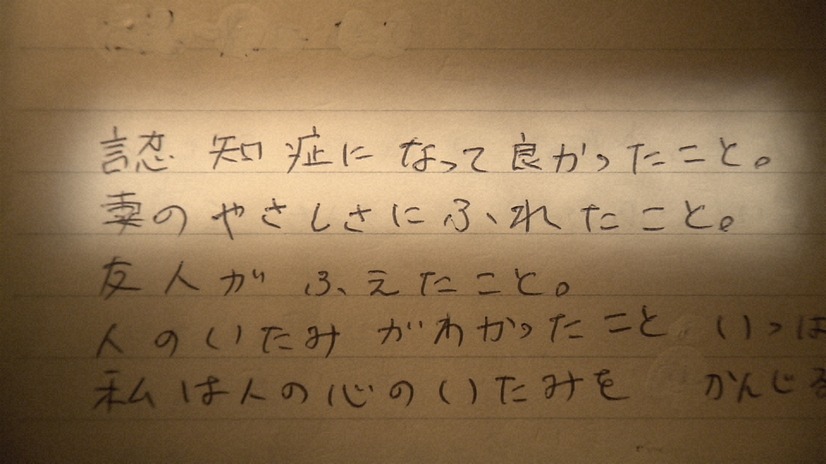 認知症になって良かったこと。
妻のやさしさにふれたこと。
友人がふえたこと。
人のいたみがわかったこと いっぱ
私は人の心のいたみを かんじる